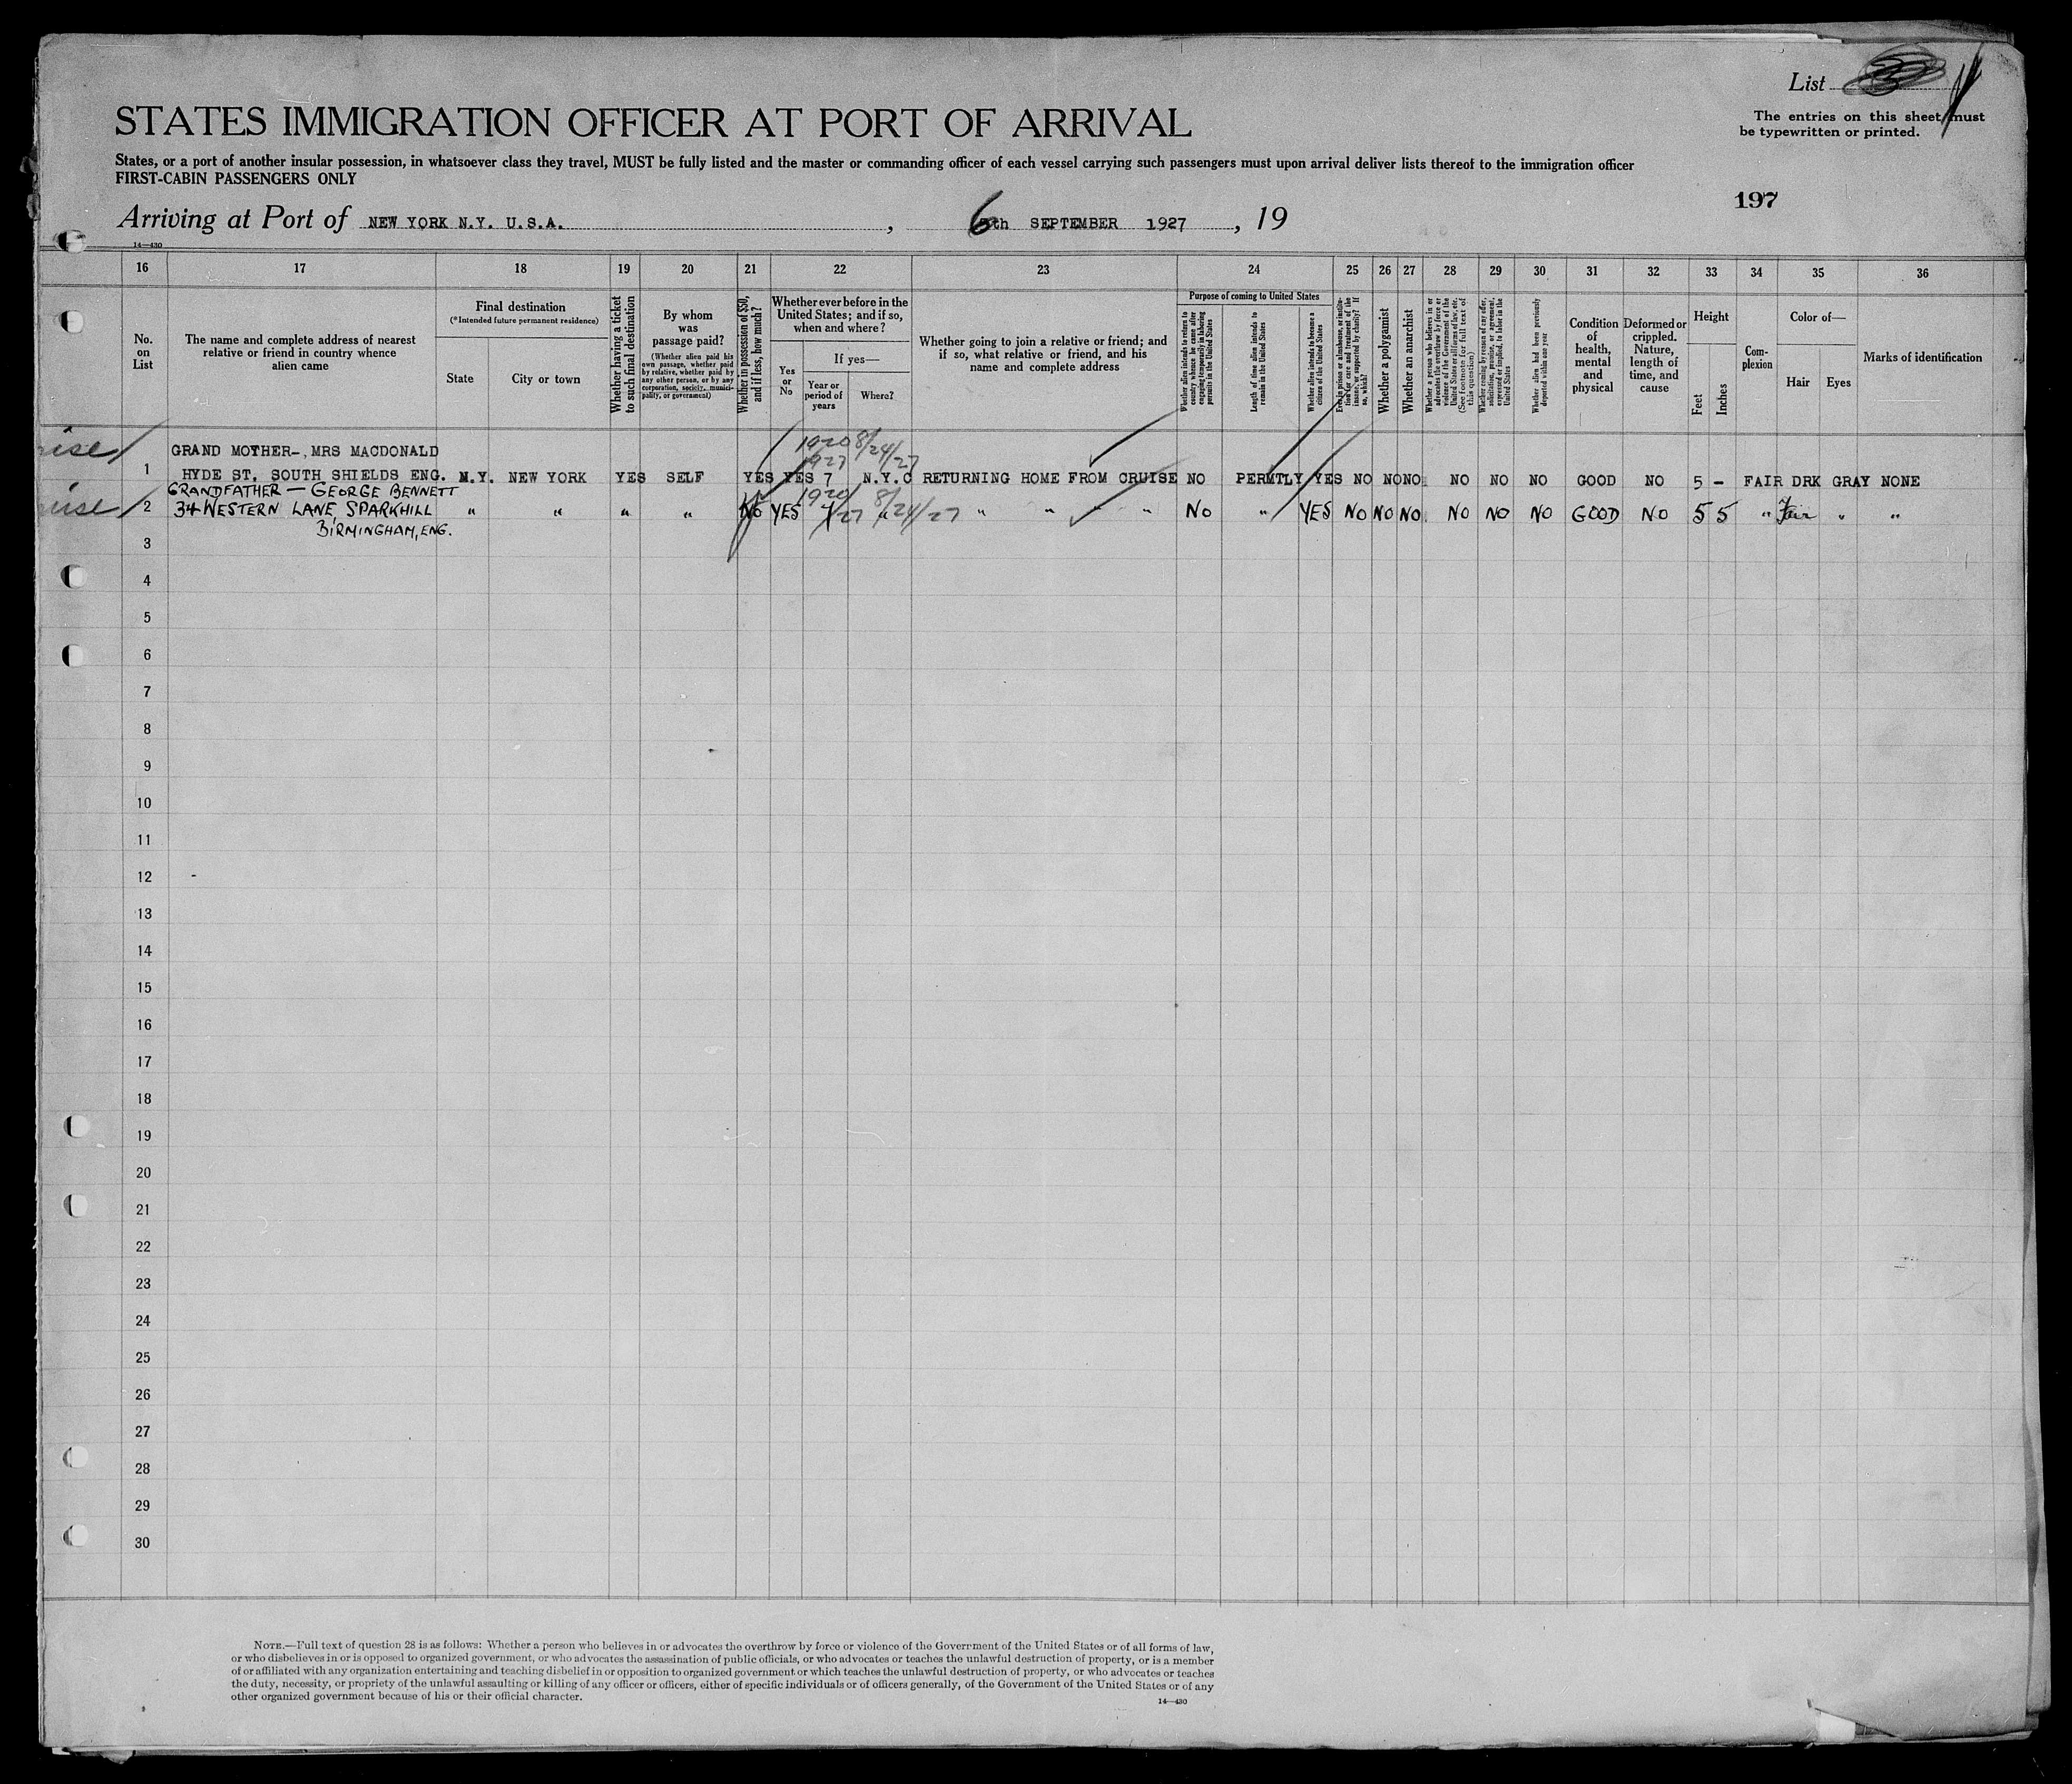 List
STATES IMMIGRATION OFFICER AT PORT OF ARRIVAL
The entries on this sheet must
be typewritten or printed.
States, or a port of another insular possession, in whatsoever class they travel, MUST be fully listed and the master or commanding officer of each vessel carrying such passengers must upon arrival deliver lists thereof to the immigration officer
FIRST-CABIN PASSENGERS ONLY
197
Arriving at Port of NEW YORK N.Y. U.S.A. , 6th SEPTEMBER 1927 , 19
14—430
16 17 18 19 20 21 22 23 24 25 26 27 28 29 30 31 32 33 34 35 36
No. on List
The name and complete address of nearest relative or friend in country whence alien came
Final destination
(*Intended future permanent residence)
State
City or town
Whether having a ticket to such final destination
By whom was passage paid?
(Whether alien paid his own passage, whether paid by relative, whether paid by any other person, or by any corporation, society, municipality, or government)
Whether in possession of $50, and if less, how much?
Whether ever before in the United States; and if so, when and where?
Yes or No
If yes—
Year or period of years
Where?
Whether going to join a relative or friend; and if so, what relative or friend, and his name and complete address
Purpose of coming to United States
Whether alien intends to return to country whence he came after engaging temporarily in laboring pursuits in the United States
Length of time alien intends to remain in the United States
Whether alien intends to become a citizen of the United States
Ever in prison or almshouse, or institution for care and treatment of the insane, or supported by charity? If so, which?
Whether a polygamist
Whether an anarchist
Whether a person who believes in or advocates the overthrow by force or violence of the Government of the United States or all forms of law, etc. (See footnote for full text of this question)
Whether coming by reason of any offer, solicitation, promise, or agreement, expressed or implied, to labor in the United States
Whether alien had been previously deported within one year
Condition of health, mental and physical
Deformed or crippled. Nature, length of time, and cause
Height
Feet
Inches
Complexion
Color of—
Hair
Eyes
Marks of identification
GRAND MOTHER-, MRS MACDONALD 1920 8/24/27
1927
1 HYDE ST. SOUTH SHIELDS ENG. N.Y. NEW YORK YES SELF YES YES 7 N.Y.C RETURNING HOME FROM CRUISE NO PERMTLY YES NO NO NO NO NO NO GOOD NO 5 - FAIR DRK GRAY NONE
GRANDFATHER — GEORGE BENNETT 1920/
2 34 WESTERN LANE SPARKHILL " " " " No YES 27 8/24/27 " " " " No " YES NO NO NO NO NO NO GOOD NO 5 5 " Fair " "
BIRMINGHAM, ENG.
3
4
5
6
7
8
9
10
11
12
13
14
15
16
17
18
19
20
21
22
23
24
25
26
27
28
29
30
NOTE.—Full text of question 28 is as follows: Whether a person who believes in or advocates the overthrow by force or violence of the Government of the United States or of all forms of law,
or who disbelieves in or is opposed to organized government, or who advocates the assassination of public officials, or who advocates or teaches the unlawful destruction of property, or is a member
of or affiliated with any organization entertaining and teaching disbelief in or opposition to organized government or which teaches the unlawful destruction of property, or who advocates or teaches
the duty, necessity, or propriety of the unlawful assaulting or killing of any officer or officers, either of specific individuals or of officers generally, of the Government of the United States or of any
other organized government because of his or their official character.
14—430